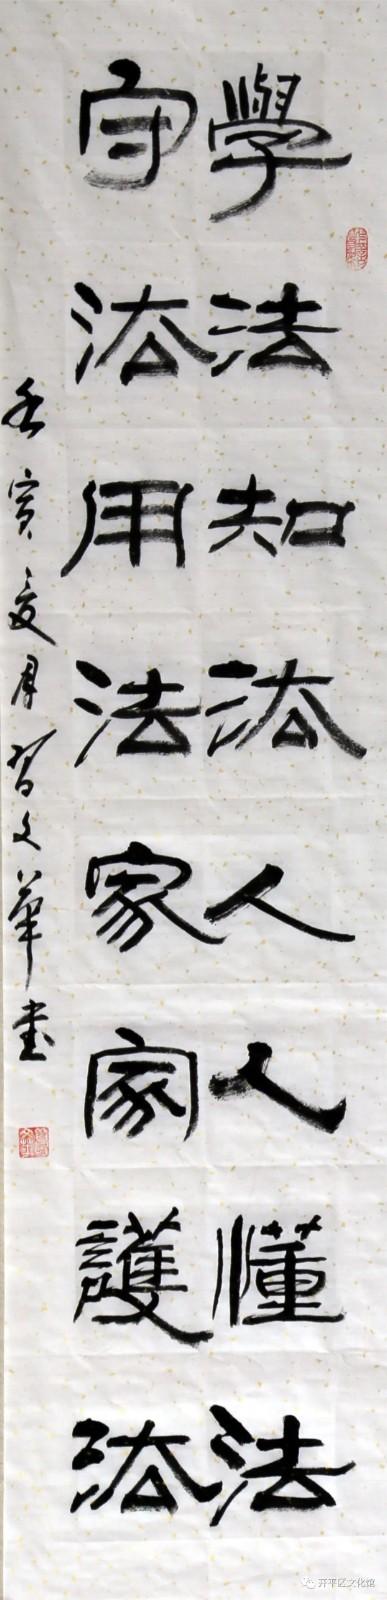 學法知法人人懂法
守法用法家家護法
壬寅夏月智文華書
开平区文化馆